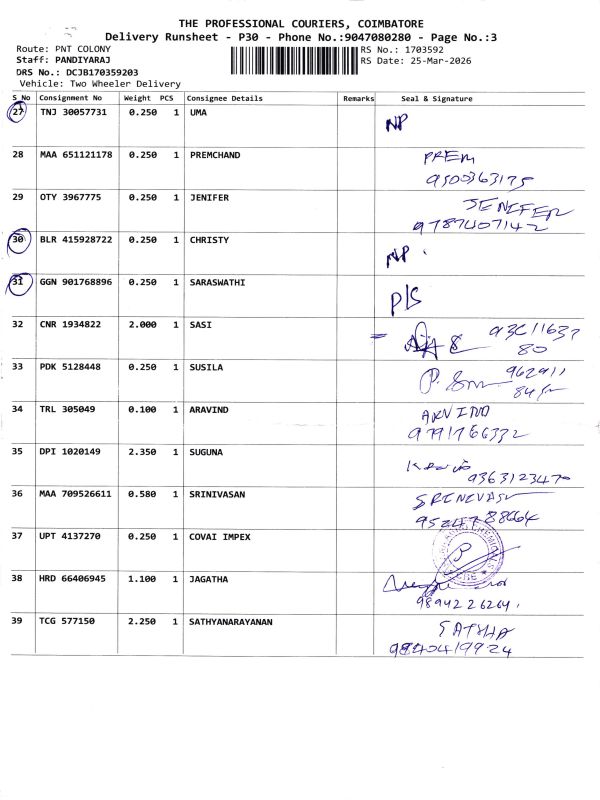 THE PROFESSIONAL COURIERS, COIMBATORE
Delivery Runsheet - P30 - Phone No.:9047080280 - Page No.:3
Route: PNT COLONY RS No.: 1703592
Staff: PANDIYARAJ RS Date: 25-Mar-2026
DRS No.: DCJB170359203
Vehicle: Two Wheeler Delivery
S No Consignment No Weight PCS Consignee Details Remarks Seal & Signature
27 TNJ 30057731 0.250 1 UMA
NP
28 MAA 651121178 0.250 1 PREMCHAND PREM
9500363175
29 OTY 3967775 0.250 1 JENIFER JENIFER
9787407142
30 BLR 415928722 0.250 1 CHRISTY
NP
31 GGN 901768896 0.250 1 SARASWATHI
P/S
32 CNR 1934822 2.000 1 SASI
80
33 PDK 5128448 0.250 1 SUSILA 962911
34 TRL 305049 0.100 1 ARAVIND ARVIND
9791766332
35 DPI 1020149 2.350 1 SUGUNA
9363123470
36 MAA 709526611 0.580 1 SRINIVASAN
9524788664
37 UPT 4137270 0.250 1 COVAI IMPEX
38 HRD 66406945 1.100 1 JAGATHA
9894226264
39 TCG 577150 2.250 1 SATHYANARAYANAN SATHYA
9840419924